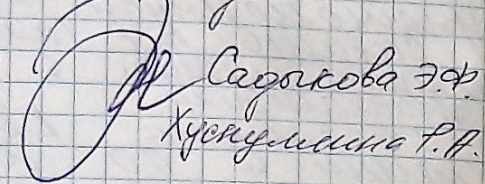 Садыкова Э.Ф.
Хуснуллина Р.А.